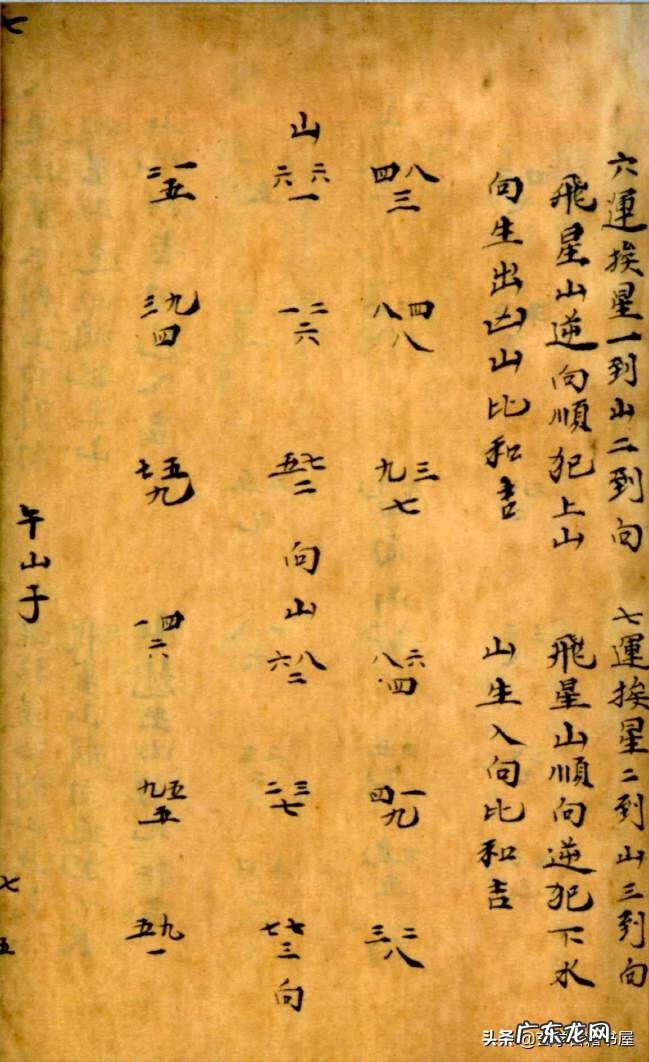 六運挨星一到山二到向
飛星山逆向順犯上山
向生出凶山比和吉
四八
三
八四
八
九三
七
山
六六
一
一二
六
五七
二
向
二一
五
三九
四
七五
九
七運挨星二到山三到向
飛星山順向逆犯下水
山生入向比和吉
八六
四
四一
九
三二
八
山
六八
二
二三
七
七七
三
向
一四
六
九五
五
五九
一
七
午山子
七
五
头条
广东龙网
书屋